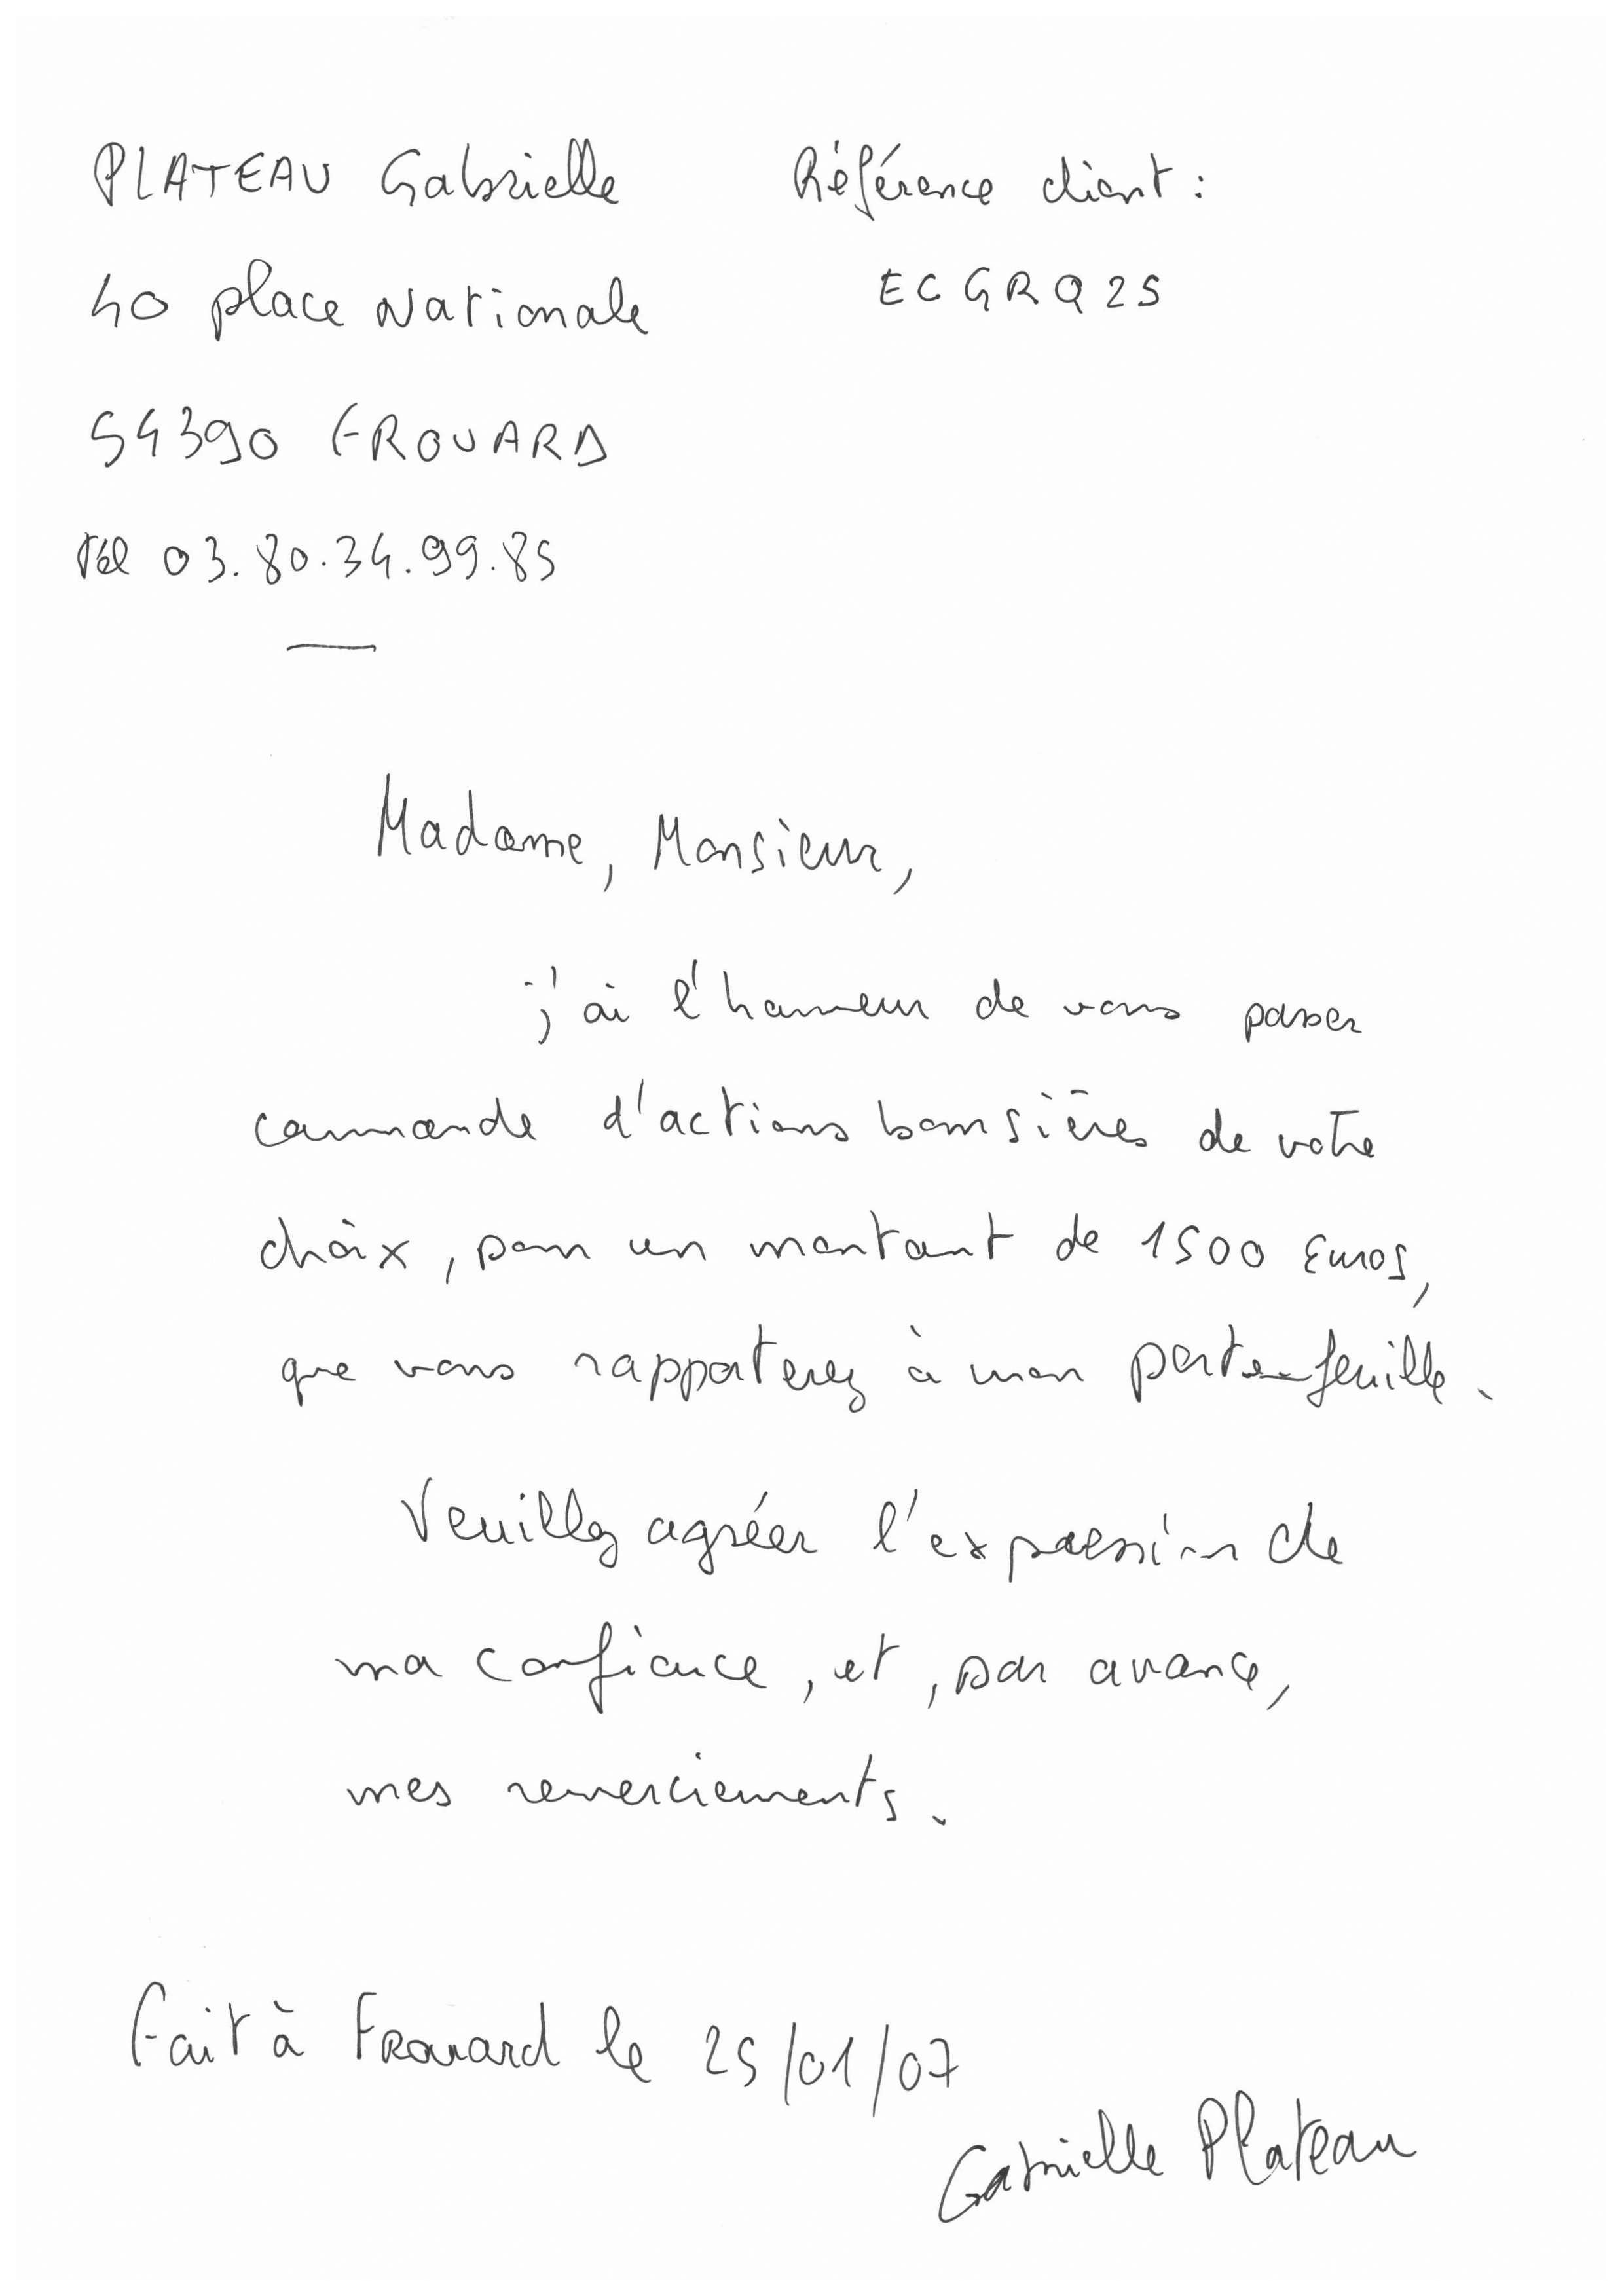 PLATEAU Gabrielle
40 place Nationale
54390 FROUARD
Tél 03.80.34.99.85
Référence client :
ECGRQ25
Madame, Monsieur,
j'ai l'honneur de vous passer
commande d'actions boursières de votre
choix, pour un montant de 1500 Euros,
que vous rapporterez à mon porte-feuille.
Veuillez agréer l'expression de
ma confiance, et, par avance,
mes remerciements.
Fait à Frouard le 25/01/07
Gabrielle Plateau